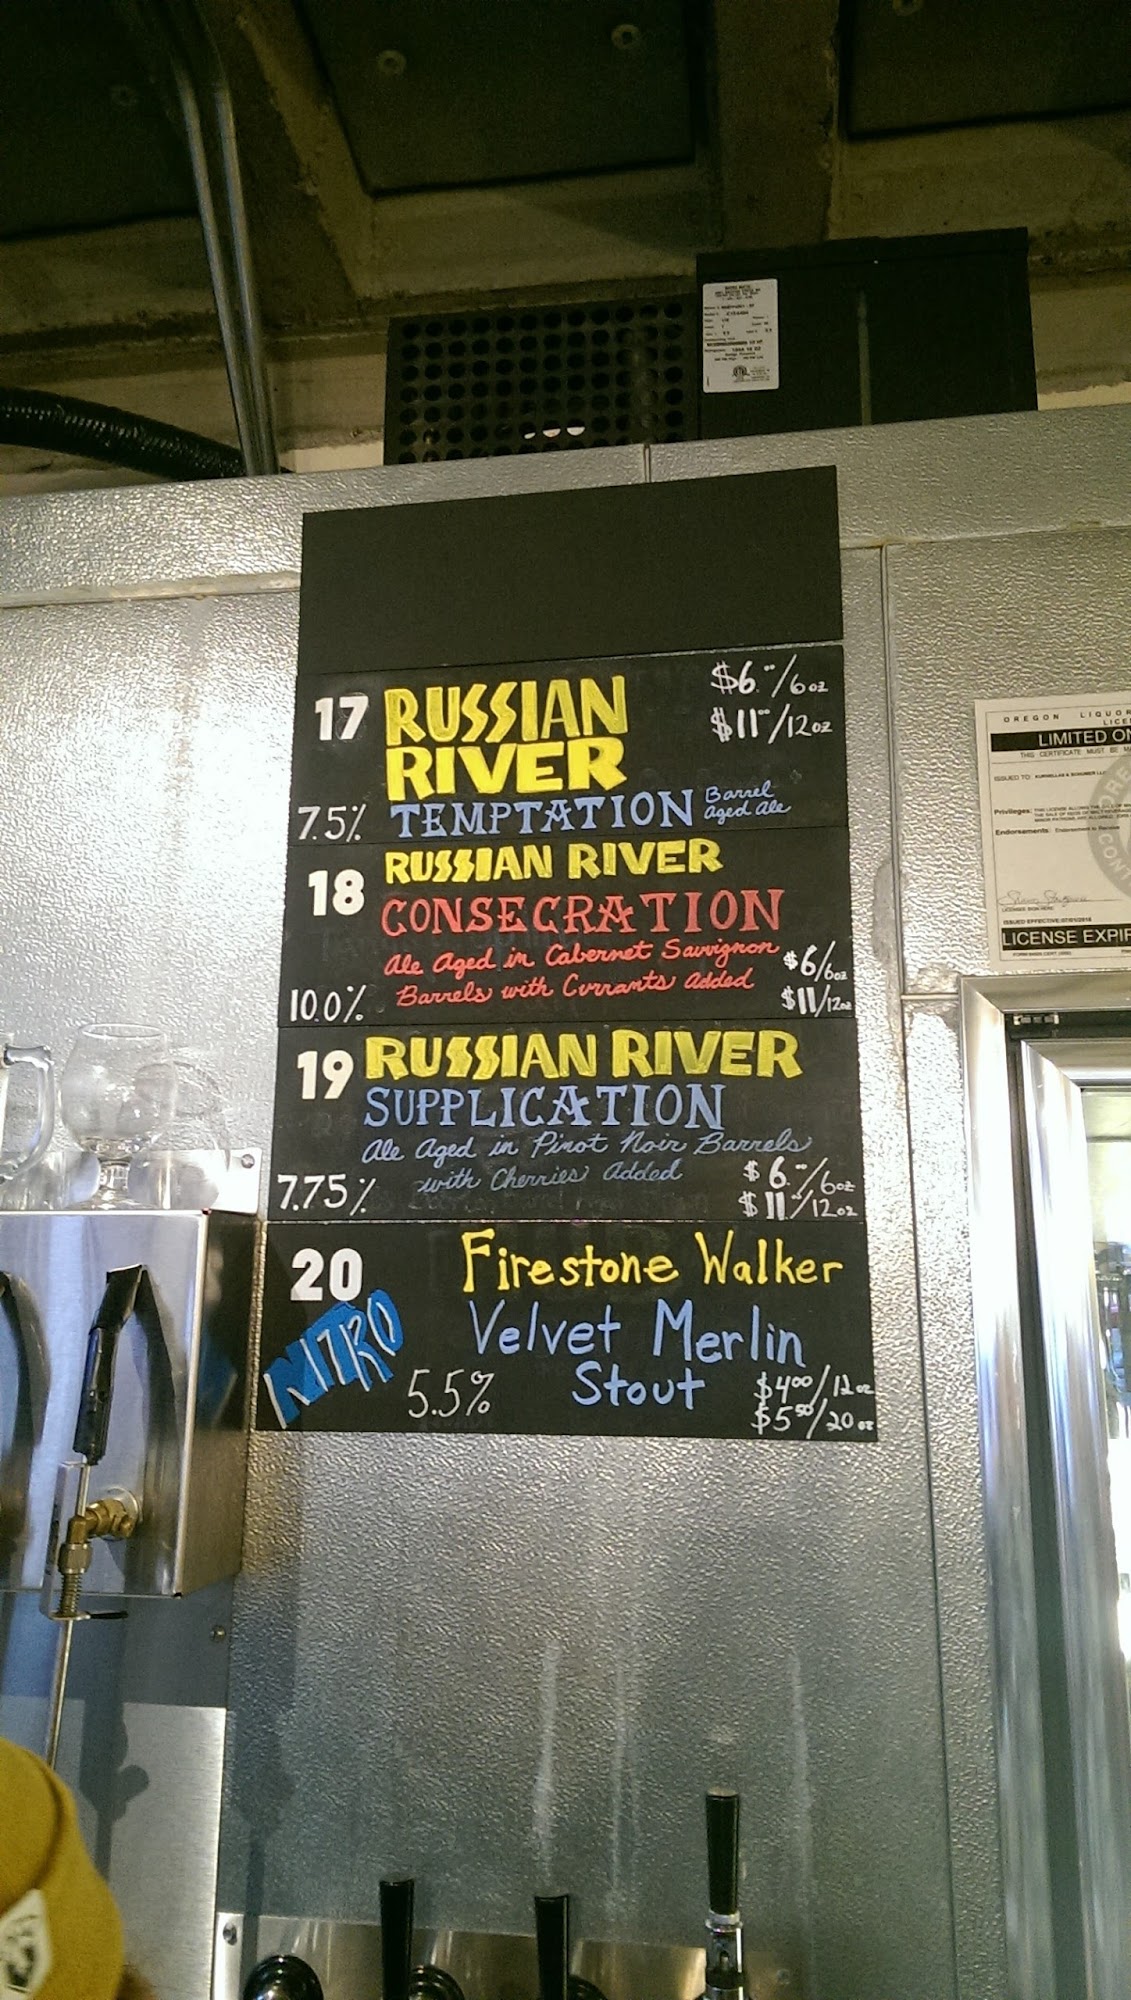 17 RUSSIAN RIVER
$6.00/6oz
$11.00/12oz
7.5% TEMPTATION Barrel Aged Ale
18 RUSSIAN RIVER
CONSECRATION
Ale Aged in Cabernet Sauvignon
Barrels with Currants Added
10.0%
$6/6oz
$11/12oz
19 RUSSIAN RIVER
SUPPLICATION
Ale Aged in Pinot Noir Barrels
with Cherries Added
7.75%
$6.00/6oz
$11.00/12oz
20 Firestone Walker
NITRO
Velvet Merlin
Stout
5.5%
$4.00/12oz
$5.50/20oz
OREGON LIQUOR
LICE
LIMITED ON
THIS CERTIFICATE MUST BE
ISSUED TO:
Privileges:
Endorsements:
LICENSE EXPIR